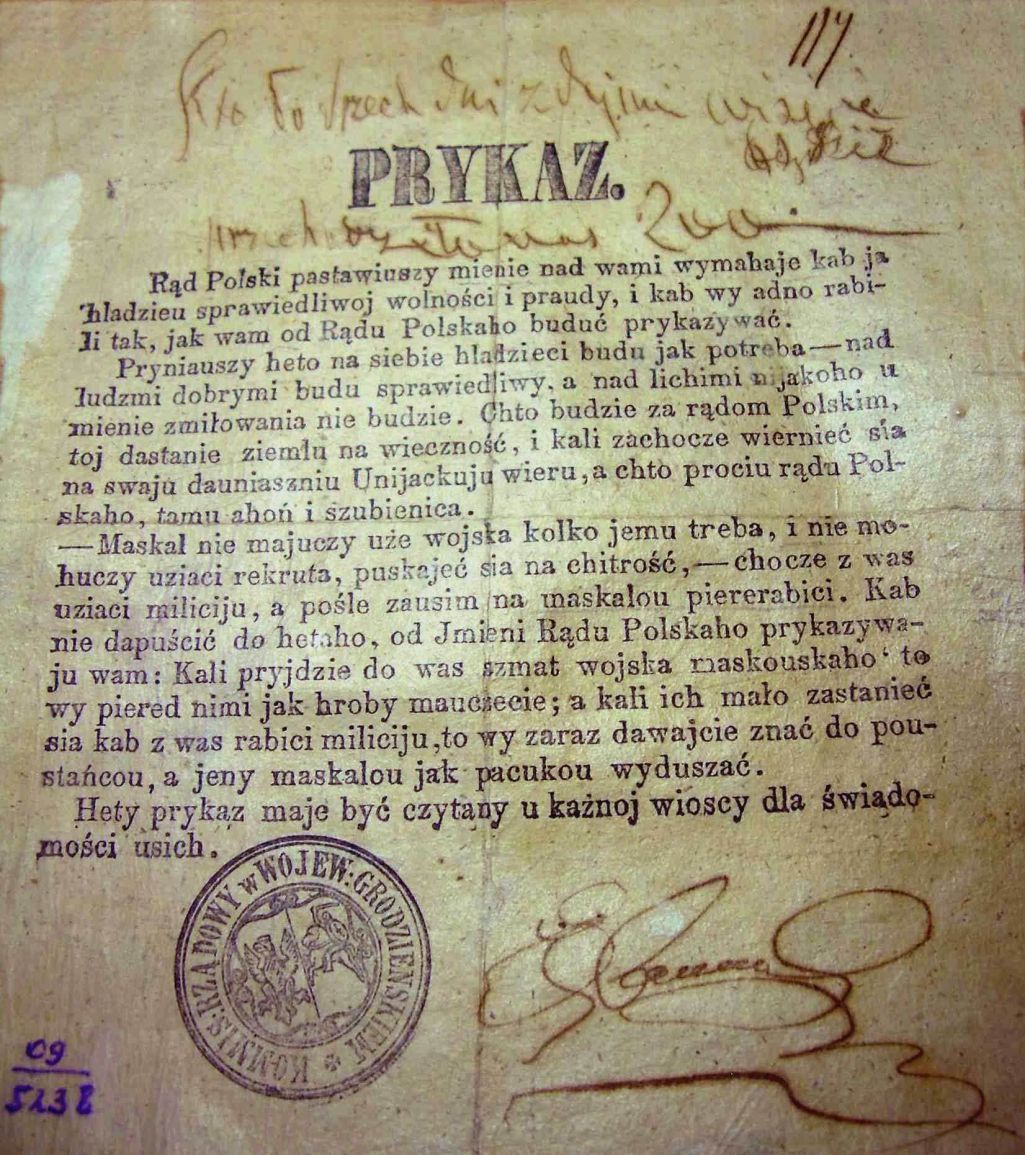 117
Kto do trzech dni z
PRYKAZ.
Rąd Polski pastawiuszy mienie nad wami wymahaje kab ja
hladzieu sprawiedliwoj wolności i praudy, i kab wy adno rabi-
li tak, jak wam od Rądu Polskaho buduć prykazywać.
Pryniauszy heto na siebie hladzieci budu jak potreba—nad
ludzmi dobrymi budu sprawiedliwy, a nad lichimi nijakoho u
mienie zmiłowania nie budzie. Chto budzie za rądom Polskim,
toj dastanie ziemlu na wieczność, i kali zachocze wiernieć sia
na swaju dauniaszniu Unijackuju wieru, a chto prociu rądu Pol-
skaho, tamu ahoń i szubienica.
—Maskal nie majuczy uże wojska kolko jemu treba, i nie mo-
huczy uziaci rekruta, puskajeć sia na chitrość,—chocze z was
uziaci miliciju, a pośle zausim na maskalou piererabici. Kab
nie dapuścić do hetaho, od Jmieni Rądu Polskaho prykazywa-
ju wam: Kali pryjdzie do was szmat wojska maskouskaho‘ to
wy piered nimi jak hroby mauczecie; a kali ich mało zastanieć
sia kab z was rabici miliciju, to wy zaraz dawajcie znać do pou-
stańcou, a jeny maskalou jak pacukou wyduszać.
Hety prykaz maje być czytany u każnoj wioscy dla świado-
mości usich.
KOMMIS: RZĄDOWY w WOJEW: GRODZIEŃSKIEM
09
5238